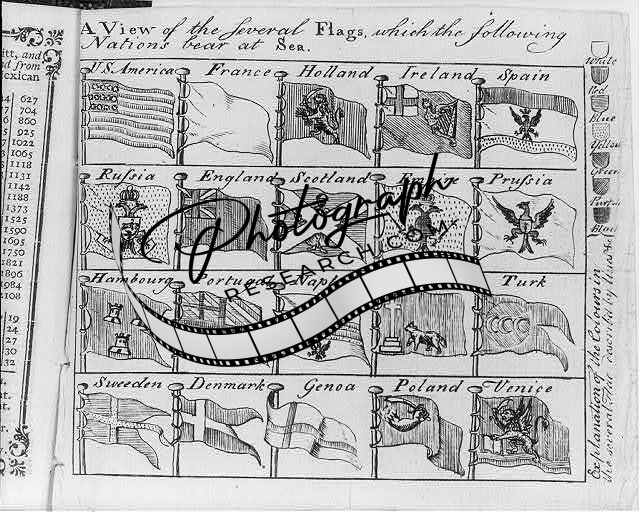 A View of the several Flags, which the following
Nations bear at Sea.
U.S. America France Holland Ireland Spain
Russia England Scotland Empire Prussia
Hambourg Portugal Turk
Sweeden Denmark Genoa Poland Venice
White
Red
Blue
Yellow
Green
Purple
Black
Explanation of the Colours in
the several
itt, and
ed from
exican
627
704
860
925
1022
1065
1118
1131
1142
1188
1373
1525
1590
1695
1750
1821
1896
1984
2108
19
24
27
30
32
Photograph
RESEARCH.COM